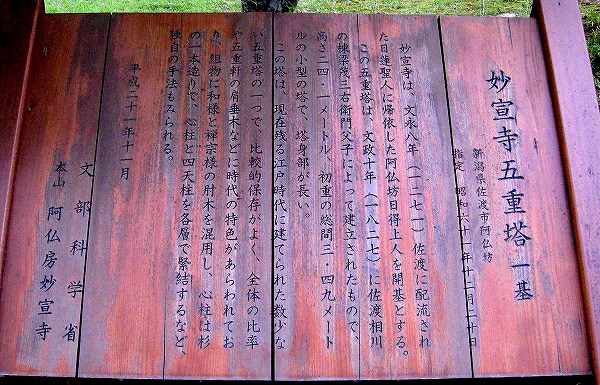 妙宣寺五重塔 一基
新潟県佐渡市阿仏坊
指定 昭和六十一年十二月二十日
妙宣寺は、文永八年（一二七一）佐渡に配流され
た日蓮聖人に帰依した阿仏坊日得上人を開基とする。
この五重塔は、文政十年（一八二七）に佐渡相川
の棟梁茂三右衛門父子によって建立されたもので、
高さ二四・一メートル、初重の総間三・四九メート
ルの小型の塔で、塔身部が長い。
この塔は、現在残る江戸時代に建てられた数少な
い五重塔の一つで、比較的保存がよく、全体の比率
や五重軒の肩垂木などに時代の特色があらわれてお
り、組物に和様と禅宗様の肘木を混用し、心柱は杉
の一本造りで、心柱と四天柱を各層で緊結するなど、
独自の手法もみられる。
平成二十一年十一月
文部科学省
本山 阿仏房妙宣寺